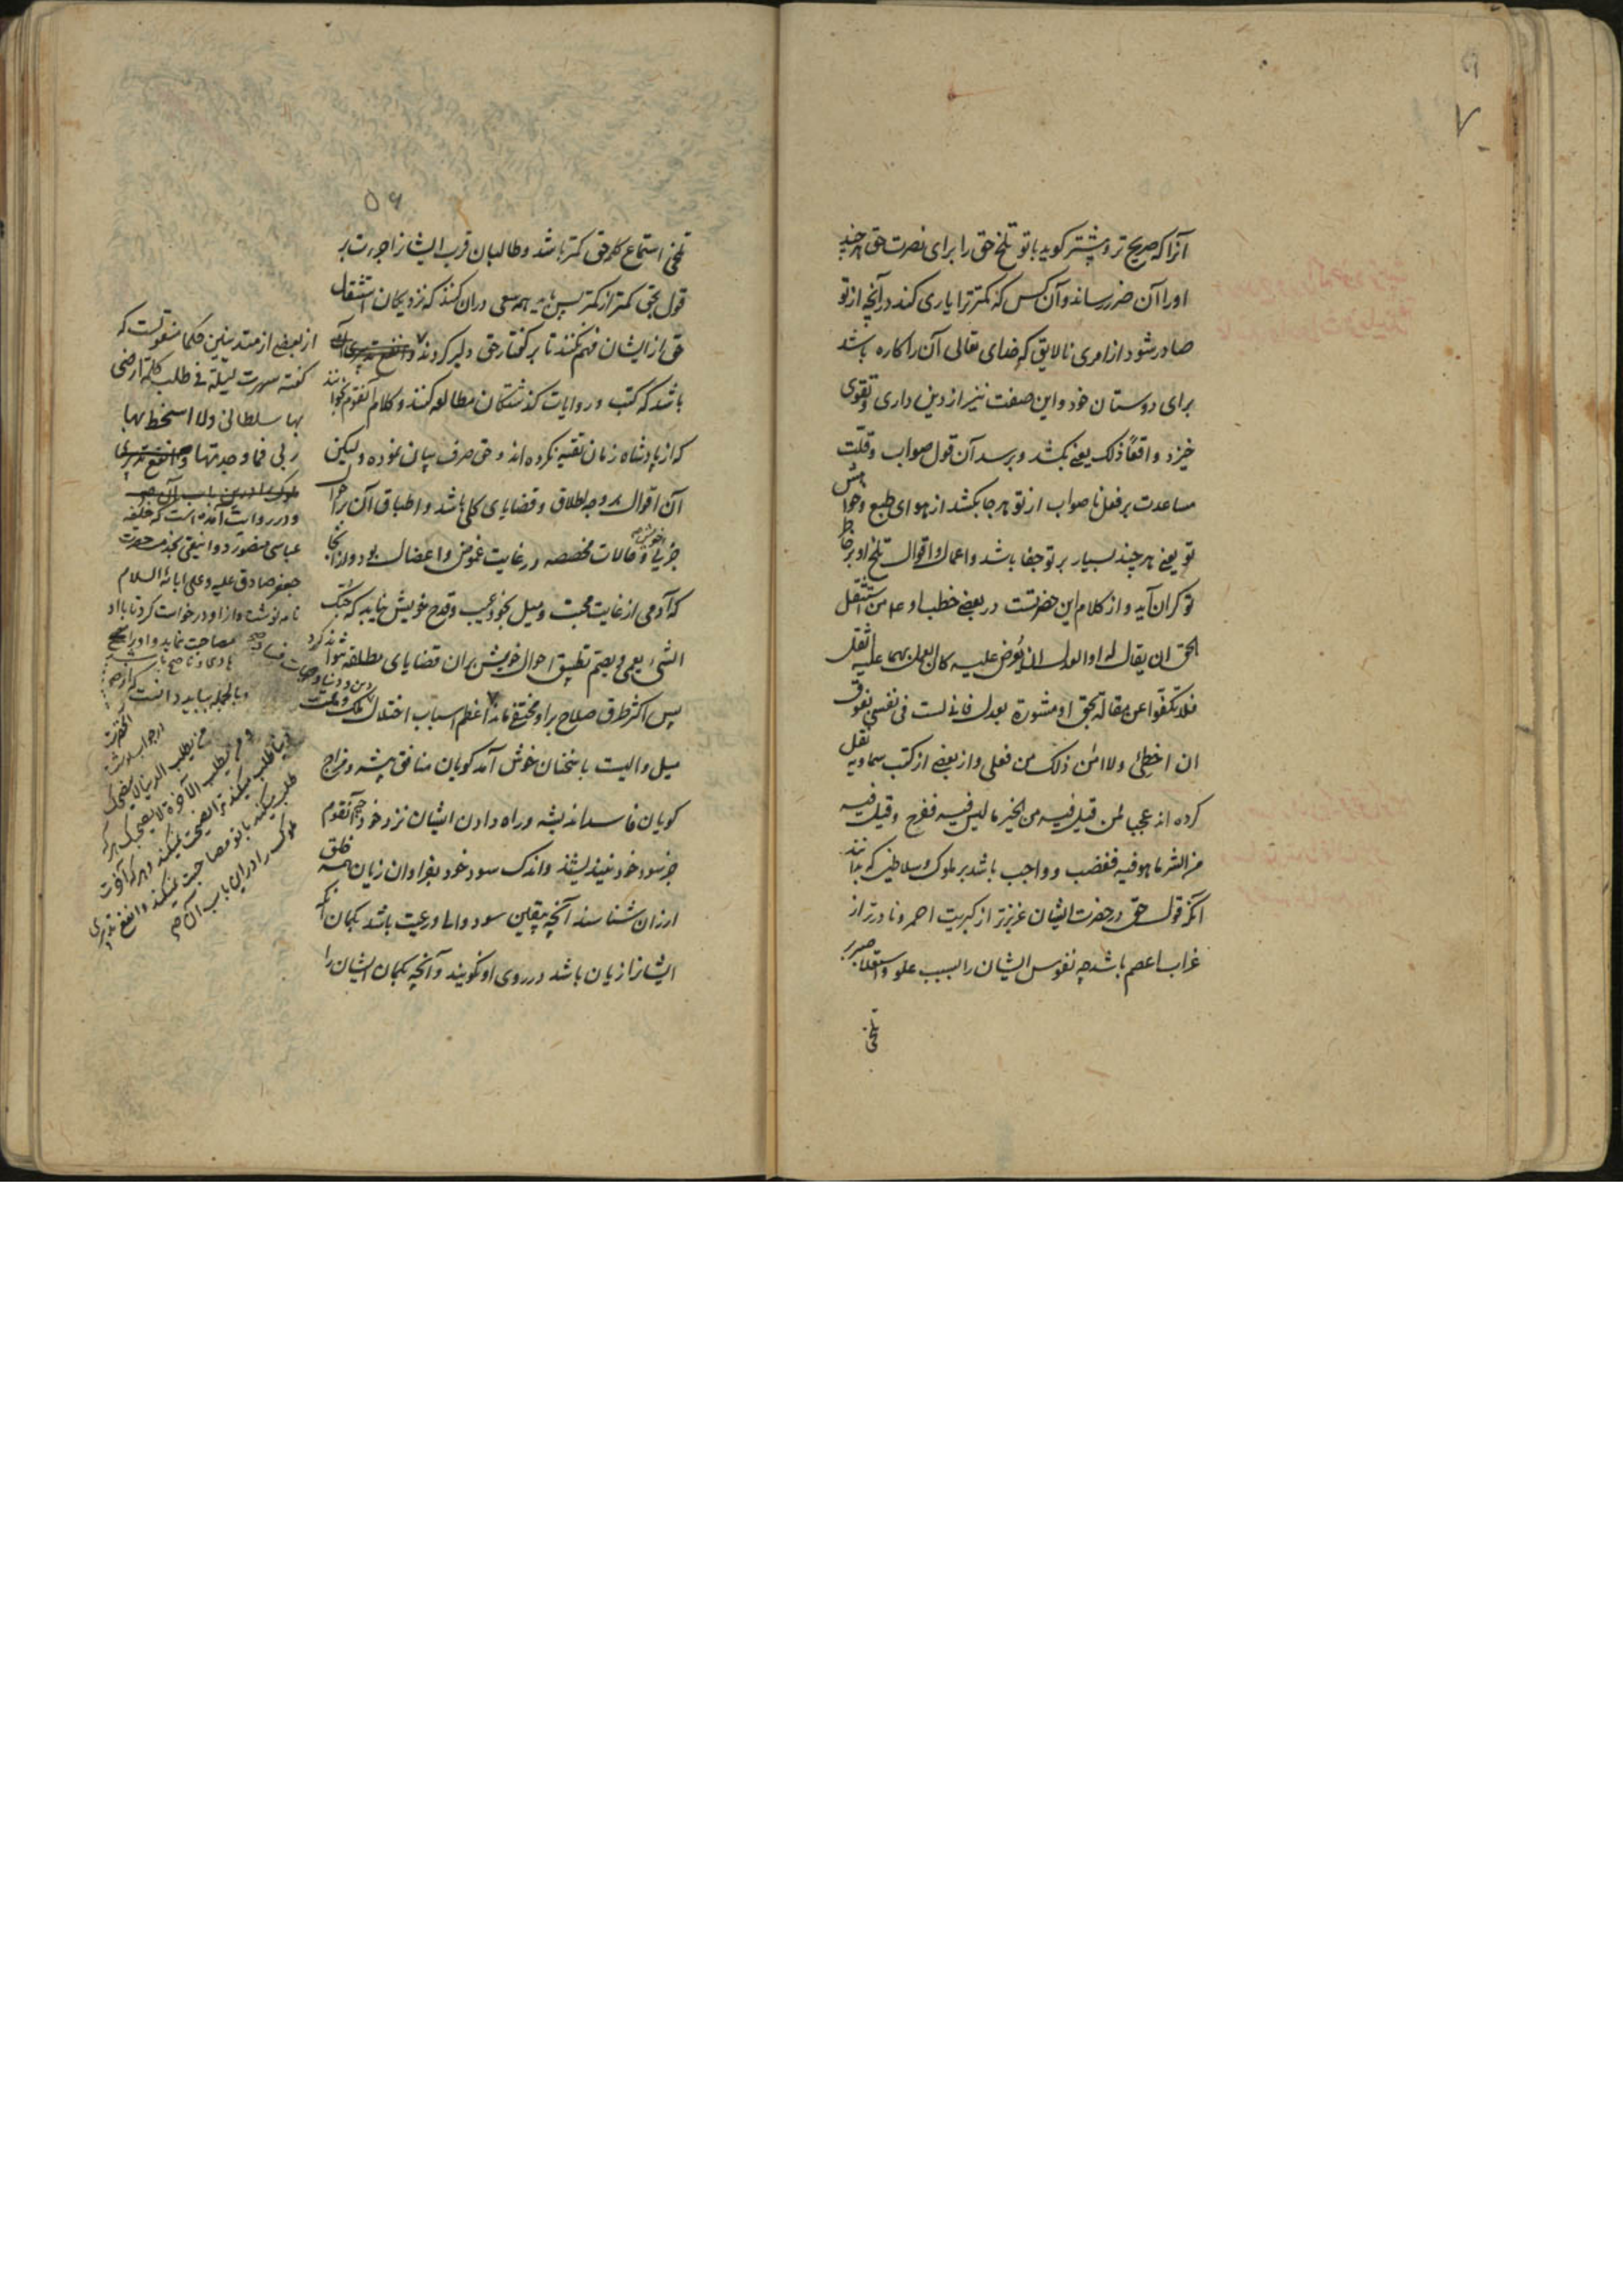 ۷
آنرا که صریح تر و پیشتر گوید با تو تلخ حق را برای نصرت حق هر چند
او را آن ضرر رساند و آن کس که کمتر ترا یاری کند در آنچه از تو
صادر شود از امری نالایق که خدای تعالی آن را کاره باشد
برای دوستان خود و این صفت نیز از دین داری و تقوی
خیزد واقعاً ذلک یعنی بکشد و برسد آن قول صواب و قلت
مساعدت بر فعل ناصواب از تو هر جا بکشد از هوای طبع و خواهش
تو یعنی هر چند بسیار بر تو جفا باشد و اعمال و اقوال تلخ او بر خاطر
تو گران آید و از کلام این حضرتست در بعضی خطب او ع من استثقل
الحق ان یقال له او العدل ان یُعرض علیه کان العمل بهما علیه اثقل
فلا تکفّوا عن مقالة بحق او مشورة بعدل فانی لست فی نفسی بفوق
ان اخطِئ ولا امَن ذلک من فعلی و از بعضی از کتب سماویه نقل
کرده اند عجبا لمن قیل فیه من الخیر ما لیس فیه ففرح و قیل فیه
من الشر ما هو فیه فغضب و واجب باشد بر ملوک و سلاطین که بدانند
آنکه قول حق در حضرت ایشان عزیزتر از کبریت احمر و نادرتر از
غراب اعصم باشد چه نفوس ایشان را بسبب علو و استعلا صبر بر
تلخی
۵۶
تلخی استماع کلمه حق کمتر باشد و طالبان قرب ایشانرا جرءت بر
قول بحق کمتر از کمتر پس باید همه سعی در آن کنند که نزدیکان استثقال
حق از ایشان فهم نکنند تا بر گفتار حق دلیر گردند
باشد که کتب و روایات گذشتگان مطالعه کنند و کلام آنقوم بخوانند
که از پادشاه زمان تقیه نکرده اند و حق صرف بیان نموده ولیکن
آن اقوال بر وجه اطلاق و قضایای کلی باشد و اطباق آن بر احوال
جزئی و حالات مخصصه در غایت غموض و اعضال بود و از آنجا
که آدمی از غایت محبت و میل بخود عیب و قدح خویش نیابد که حُبّک
الشیء یعمی و یصم تطبیق احوال خویش بدان قضایای مطلقه نتواند کرد
پس اکثر طرق صلاح بر او مختفی ماند اعظم اسباب اختلال ملک و ملت
میل والیست با سخنان خوش آمد گویان منافق پیشه و مزاج
گویان فاسد اندیشه و راه دادن ایشان نزد خود چه آنقوم
جز سود خود نیندیشند و اندک سود خود بفراوان زیان همه خلق
ارزان شناسند آنچه بیقین سود والی و رعیت باشد بگمان آنکه
ایشانرا زیان باشد در روی او نگویند و آنچه بگمان ایشان را
از بعضی از متدینین حکما منقولست که
گفته سهرت لیلة فی طلب کلمة ارضی
بها سلطانی ولا اسخط بها
ربی فما وجدتها
و در روایت آمده است که خلیفه
عباسی منصور دوانیقی بخدمت حضرت
جعفر صادق علیه و علی ابائه السلام
نامه نوشت و از او درخواست کرد تا با او
مصاحبت نماید و او را نصح
و بالجمله بباید دانست که
آنحضرت
در جواب نوشت
من یطلب الدنیا لا ینصحک
و من یطلب الآخرة لا یصحبک هر که
دنیا طلب میکند ترا نصیحت نمیکند و هر که آخرت
طلب میکند با تو مصاحبت نمیکند و انفع تدبیری
ملوک را در این باب آن